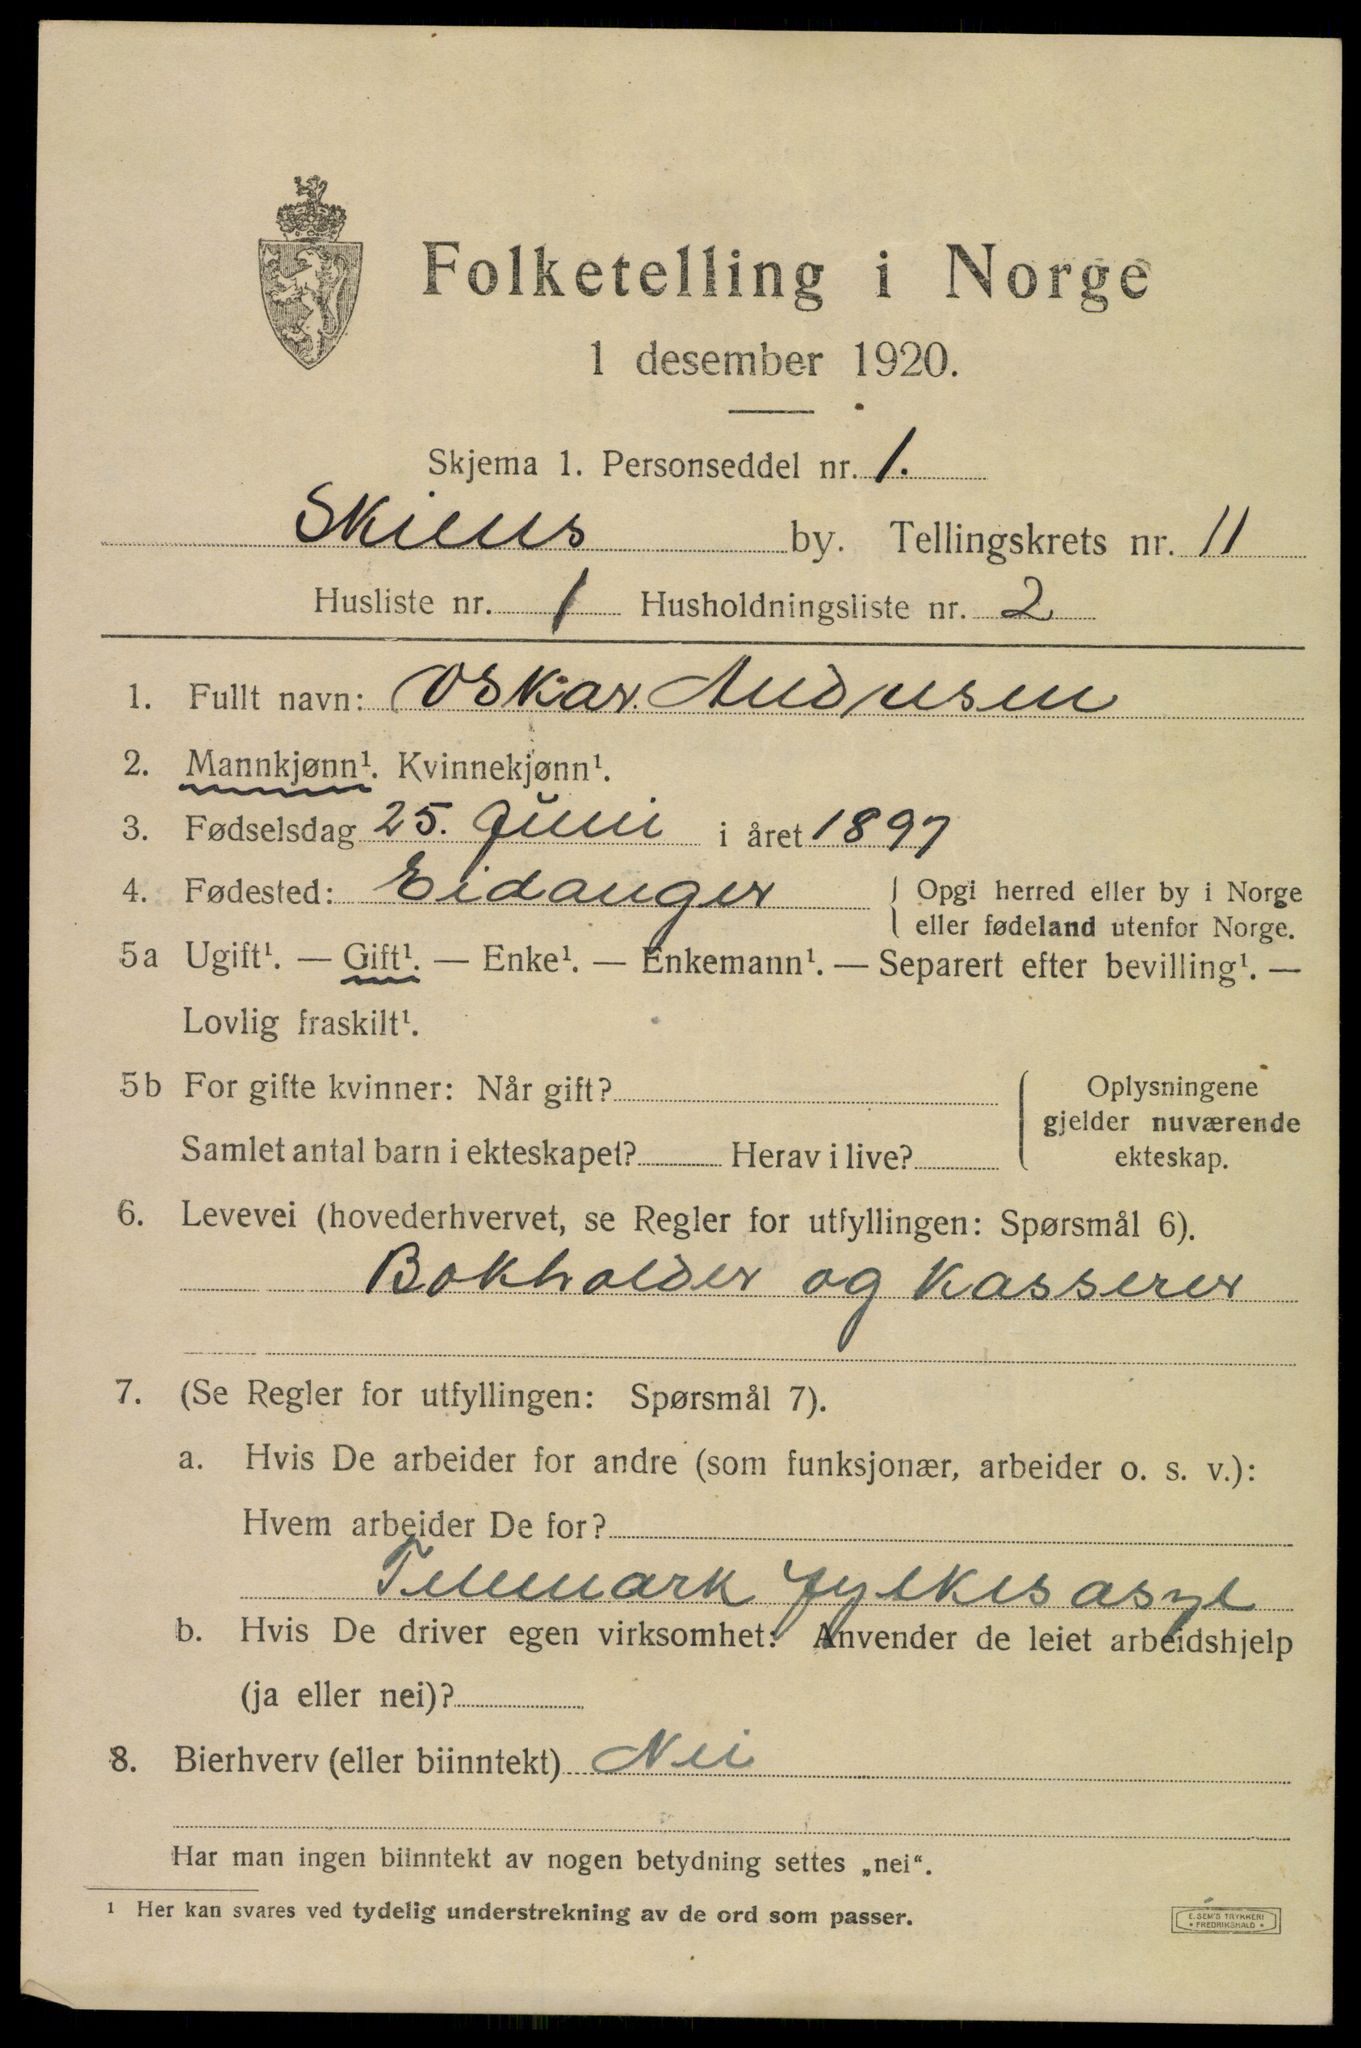 Folketelling i Norge
1 desember 1920.
Skjema 1. Personseddel nr. 1.
Skiens by. Tellingskrets nr. 11
Husliste nr. 1 Husholdningsliste nr. 2
1. Fullt navn: Oskar Andresen
2. Mannkjønn¹. Kvinnekjønn¹.
3. Fødselsdag 25. Juni i året 1897
4. Fødested: Eidanger { Opgi herred eller by i Norge
eller fødeland utenfor Norge.
5a Ugift¹. — Gift¹. — Enke¹. — Enkemann¹. — Separert efter bevilling¹. —
Lovlig fraskilt¹.
5b For gifte kvinner: Når gift?
Samlet antal barn i ekteskapet? Herav i live?
Oplysningene
gjelder nuværende
ekteskap.
6. Levevei (hovederhvervet, se Regler for utfyllingen: Spørsmål 6).
Bokholder og kasserer
7. (Se Regler for utfyllingen: Spørsmål 7).
a. Hvis De arbeider for andre (som funksjonær, arbeider o. s. v.):
Hvem arbeider De for?
Telemark fylkesasyl
b. Hvis De driver egen virksomhet: Anvender de leiet arbeidshjelp
(ja eller nei)?
8. Bierhverv (eller biinntekt) Nei
Har man ingen biinntekt av nogen betydning settes „nei“.
¹ Her kan svares ved tydelig understrekning av de ord som passer.
E. SEM'S TRYKKERI
• FREDRIKSHALD •